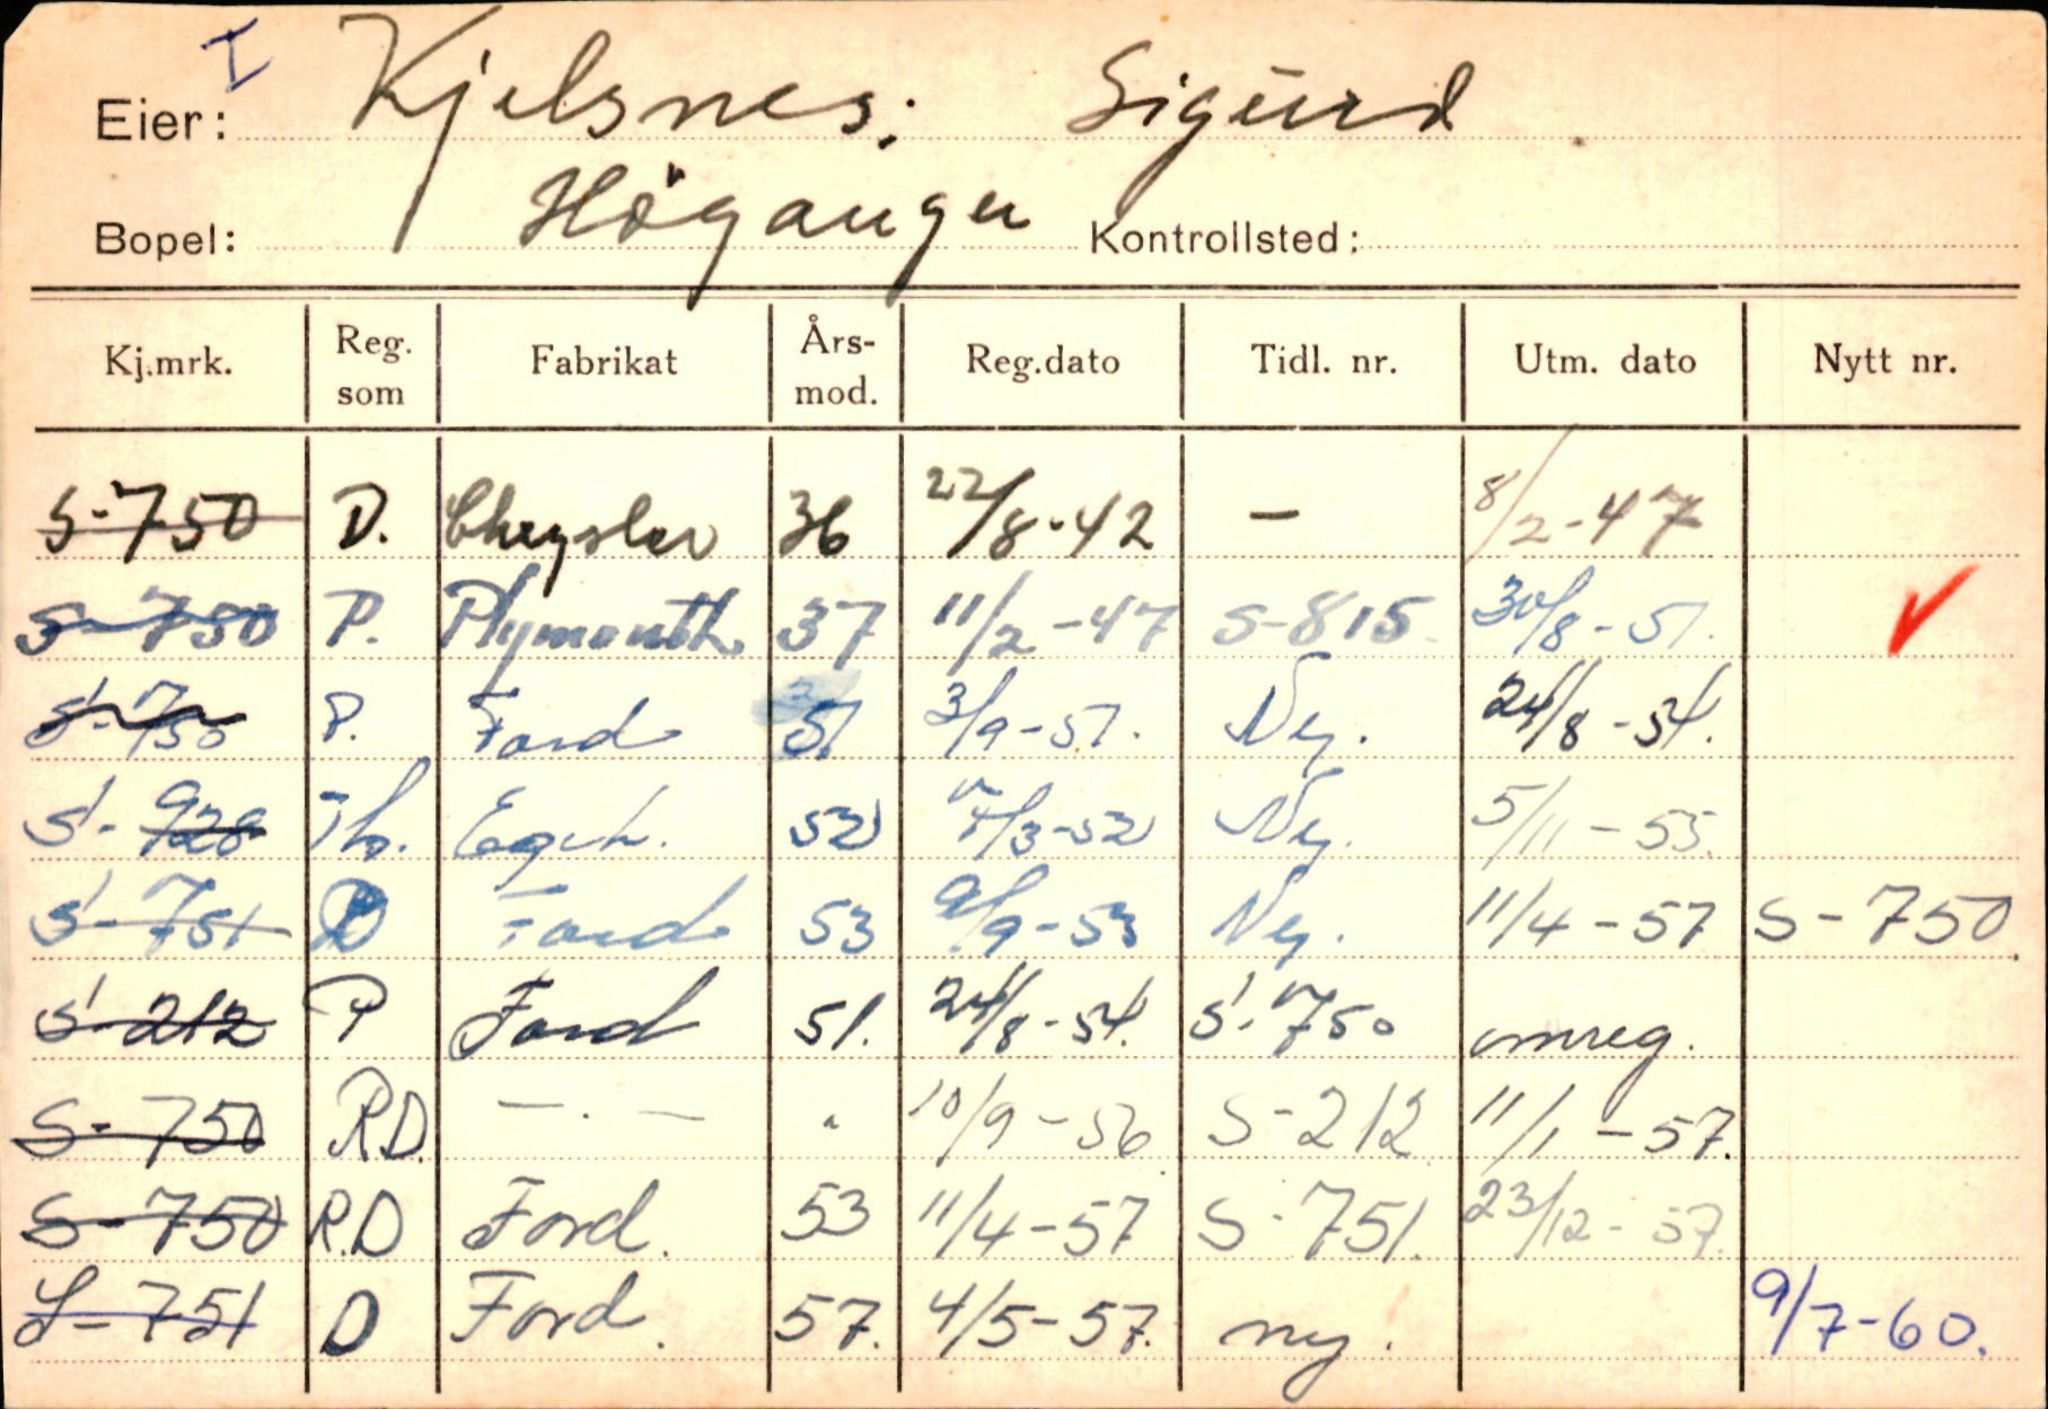 I
Eier: Kjelsnes, Sigurd
Bopel: Höganger Kontrollsted:
Kj.mrk. Reg. som Fabrikat Års-mod. Reg.dato Tidl. nr. Utm. dato Nytt nr.
S-750 D. Chrysler 36 22/8-42 — 8/2-47
S-750 P. Plymouth 37 11/2-47 S-815 30/8-51.
S-750 P. Ford 51 3/9-51. Ny. 24/8-54.
S-928 52 /3-52 Ny. 5/11-55.
S-751 D Ford 53 9/9-53 Ny. 11/4-57 S-750.
S-212 P Ford 51. 24/8-54. S-750 omreg.
S-750 R.D. — . — " 10/9-56. S-212. 11/1-57.
S-750 R.D Ford. 53 11/4-57 S-751. 23/12-57.
S-751 D Ford. 57. 4/5-57. ny. 9/7-60.